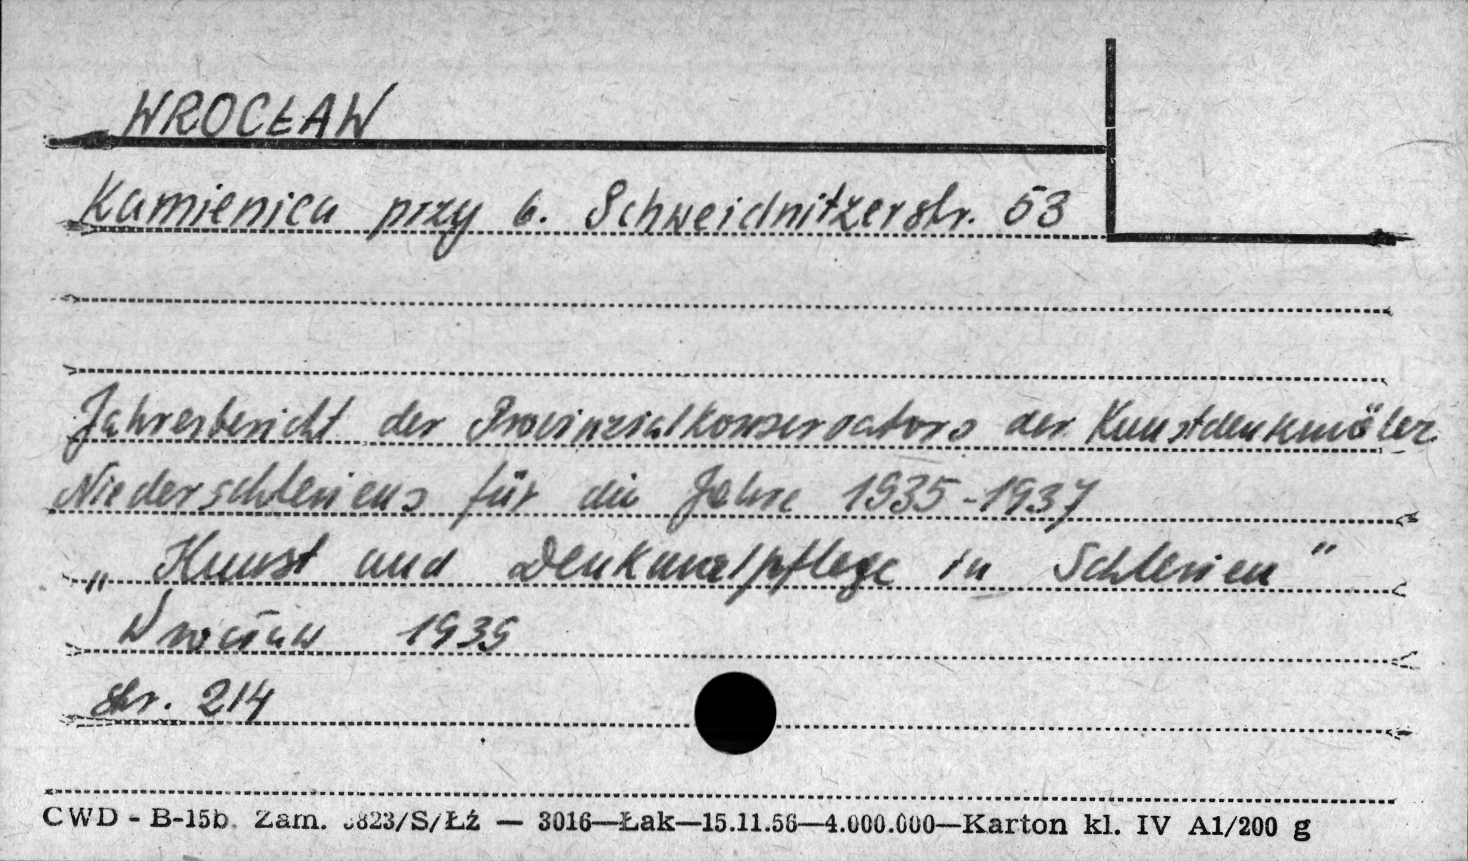 WROCŁAW
Kamienica przy b. Schweidnitzerstr. 53
Jahresbericht der Provinzialkonservators der Kunstdenkmäler
Niederschlesiens für die Jahre 1935-1937
„Kunst und Denkmalpflege in Schlesien"
Wrocław 1939
str. 214
CWD - B-15b. Zam. 823/S/Łź — 3016—Łak—15.11.56—4.000.000—Karton kl. IV A1/200 g